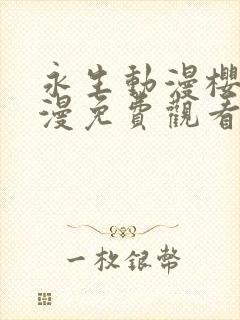 永生動漫櫻
漫免費觀看
一枚銀幣